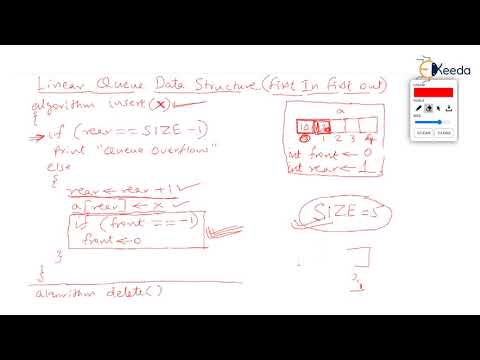 Linear Queue Data Structure (First In First out)
algorithm insert (x)
{
if (rear == SIZE -1)
Print "Queue Overflow"
else
{
rear ← rear + 1
a[rear] ← x
if (front == -1)
front ← 0
}
}
algorithm delete()
a
10
0 1 2 3 4
int front ← 0
int rear ← 1
SIZE = 5
Keeda
CLEAR CLOSE